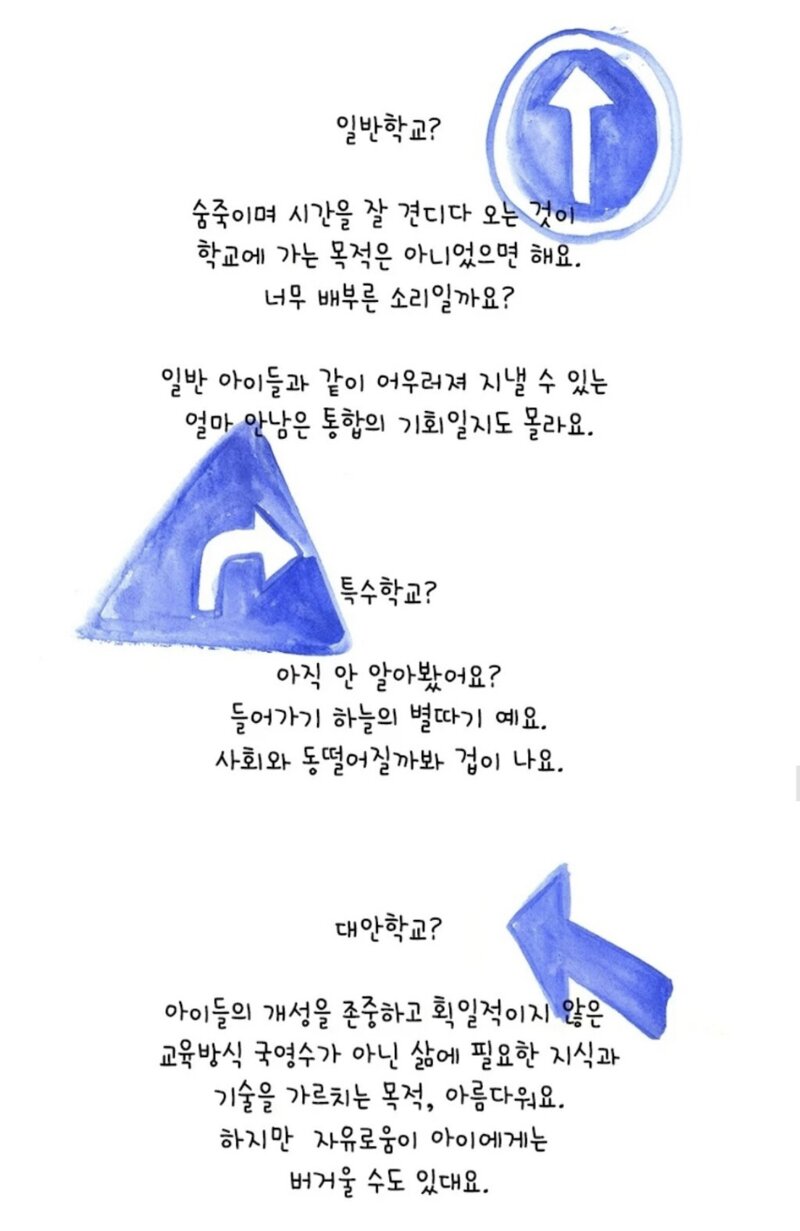 일반학교?
숨죽이며 시간을 잘 견디다 오는 것이
학교에 가는 목적은 아니었으면 해요.
너무 배부른 소리일까요?
일반 아이들과 같이 어우러져 지낼 수 있는
얼마 안남은 통합의 기회일지도 몰라요.
특수학교?
아직 안 알아봤어요?
들어가기 하늘의 별따기 예요.
사회와 동떨어질까봐 겁이 나요.
대안학교?
아이들의 개성을 존중하고 획일적이지 않은
교육방식 국영수가 아닌 삶에 필요한 지식과
기술을 가르치는 목적, 아름다워요.
하지만 자유로움이 아이에게는
버거울 수도 있대요.